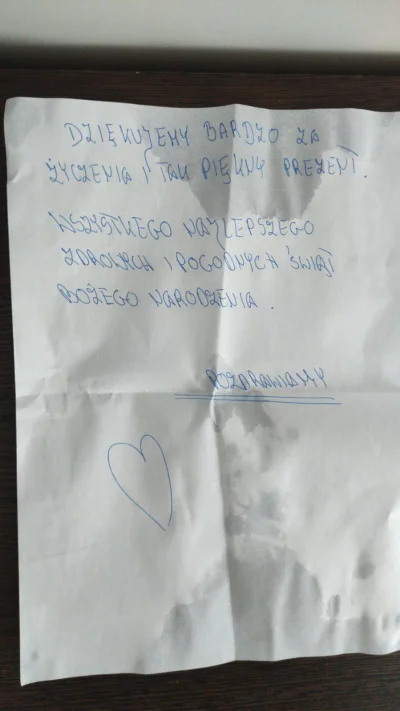 DZIĘKUJEMY BARDZO ZA
ŻYCZENIA I TAK PIĘKNY PREZENT.
WSZYSTKEGO NAJLEPSZEGO
ZDROWYCH I POGODNYCH ŚWIĄT
BOŻEGO NARODZENIA.
POZDRAWIAMY